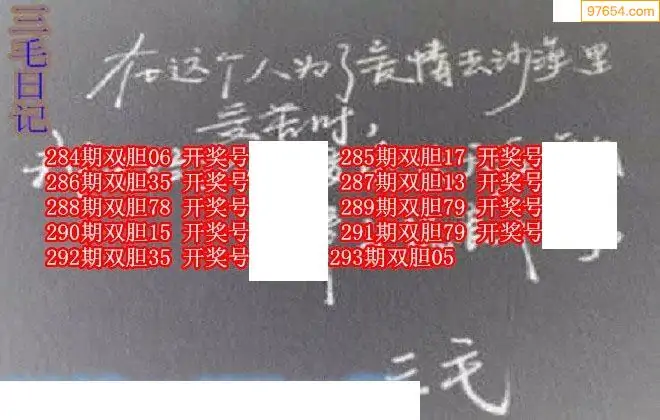 97654.com
三毛日记
在这个人为了爱情去沙漠里
受苦时，
284期双胆06 开奖号 285期双胆17 开奖号
286期双胆35 开奖号 287期双胆13 开奖号
288期双胆78 开奖号 289期双胆79 开奖号
290期双胆15 开奖号 291期双胆79 开奖号
292期双胆35 开奖号 293期双胆05
三毛